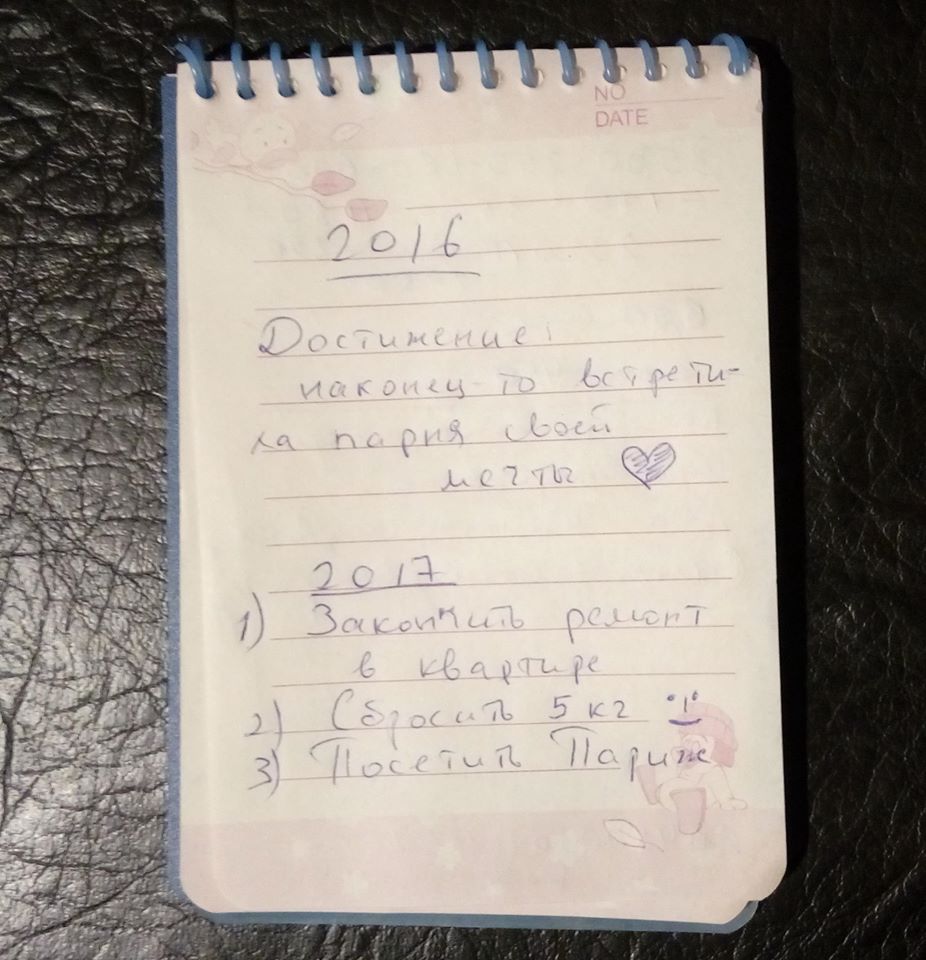 NO
DATE
2016
Достижение:
наконец-то встрети-
ла парня своей
мечты
2017
1) Закончить ремонт
в квартире
2) Сбросить 5 кг
3) Посетить Париж